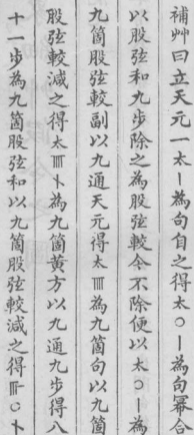 補艸曰立天元一太丨為句自之得太〇丨為句冪合
以股弦和九步除之為股弦較今不除便以太〇丨為
九箇股弦較副以九通天元得太𝍨為九箇句以九箇
股弦較減之得太𝍨卜為九箇黃方以九通九步得八
十一步為九箇股弦和以九箇股弦較減之得〇卜